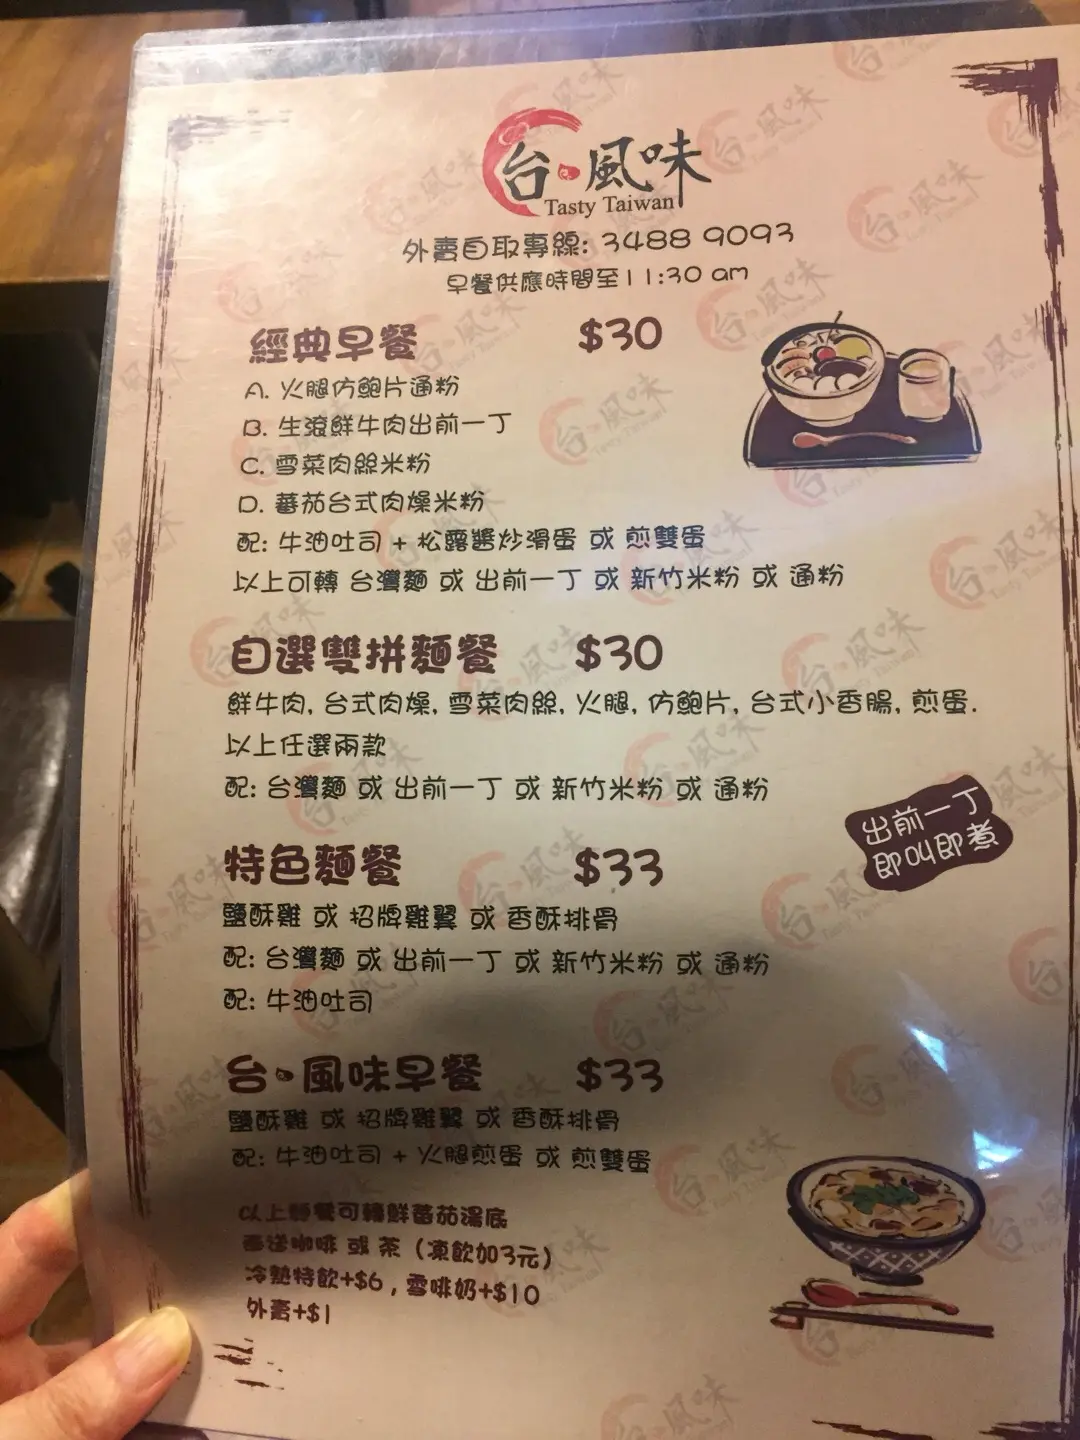 台風味
Tasty Taiwan
外賣自取專線: 3488 9093
早餐供應時間至11:30 am
經典早餐 $30
A. 火腿仿鮑片通粉
B. 生滾鮮牛肉出前一丁
C. 雪菜肉絲米粉
D. 蕃茄台式肉燥米粉
配: 牛油吐司 + 松露醬炒滑蛋 或 煎雙蛋
以上可轉 台灣麵 或 出前一丁 或 新竹米粉 或 通粉
自選雙拼麵餐 $30
鮮牛肉, 台式肉燥, 雪菜肉絲, 火腿, 仿鮑片, 台式小香腸, 煎蛋.
以上任選兩款
配: 台灣麵 或 出前一丁 或 新竹米粉 或 通粉
出前一丁
即叫即煮
特色麵餐 $33
鹽酥雞 或 招牌雞翼 或 香酥排骨
配: 台灣麵 或 出前一丁 或 新竹米粉 或 通粉
配: 牛油吐司
台風味早餐 $33
鹽酥雞 或 招牌雞翼 或 香酥排骨
配: 牛油吐司 + 火腿煎蛋 或 煎雙蛋
以上麵餐可轉鮮蕃茄湯底
送咖啡 或 茶 (凍飲加3元)
冷熱特飲+$6 , 雪啡奶+$10
外賣+$1